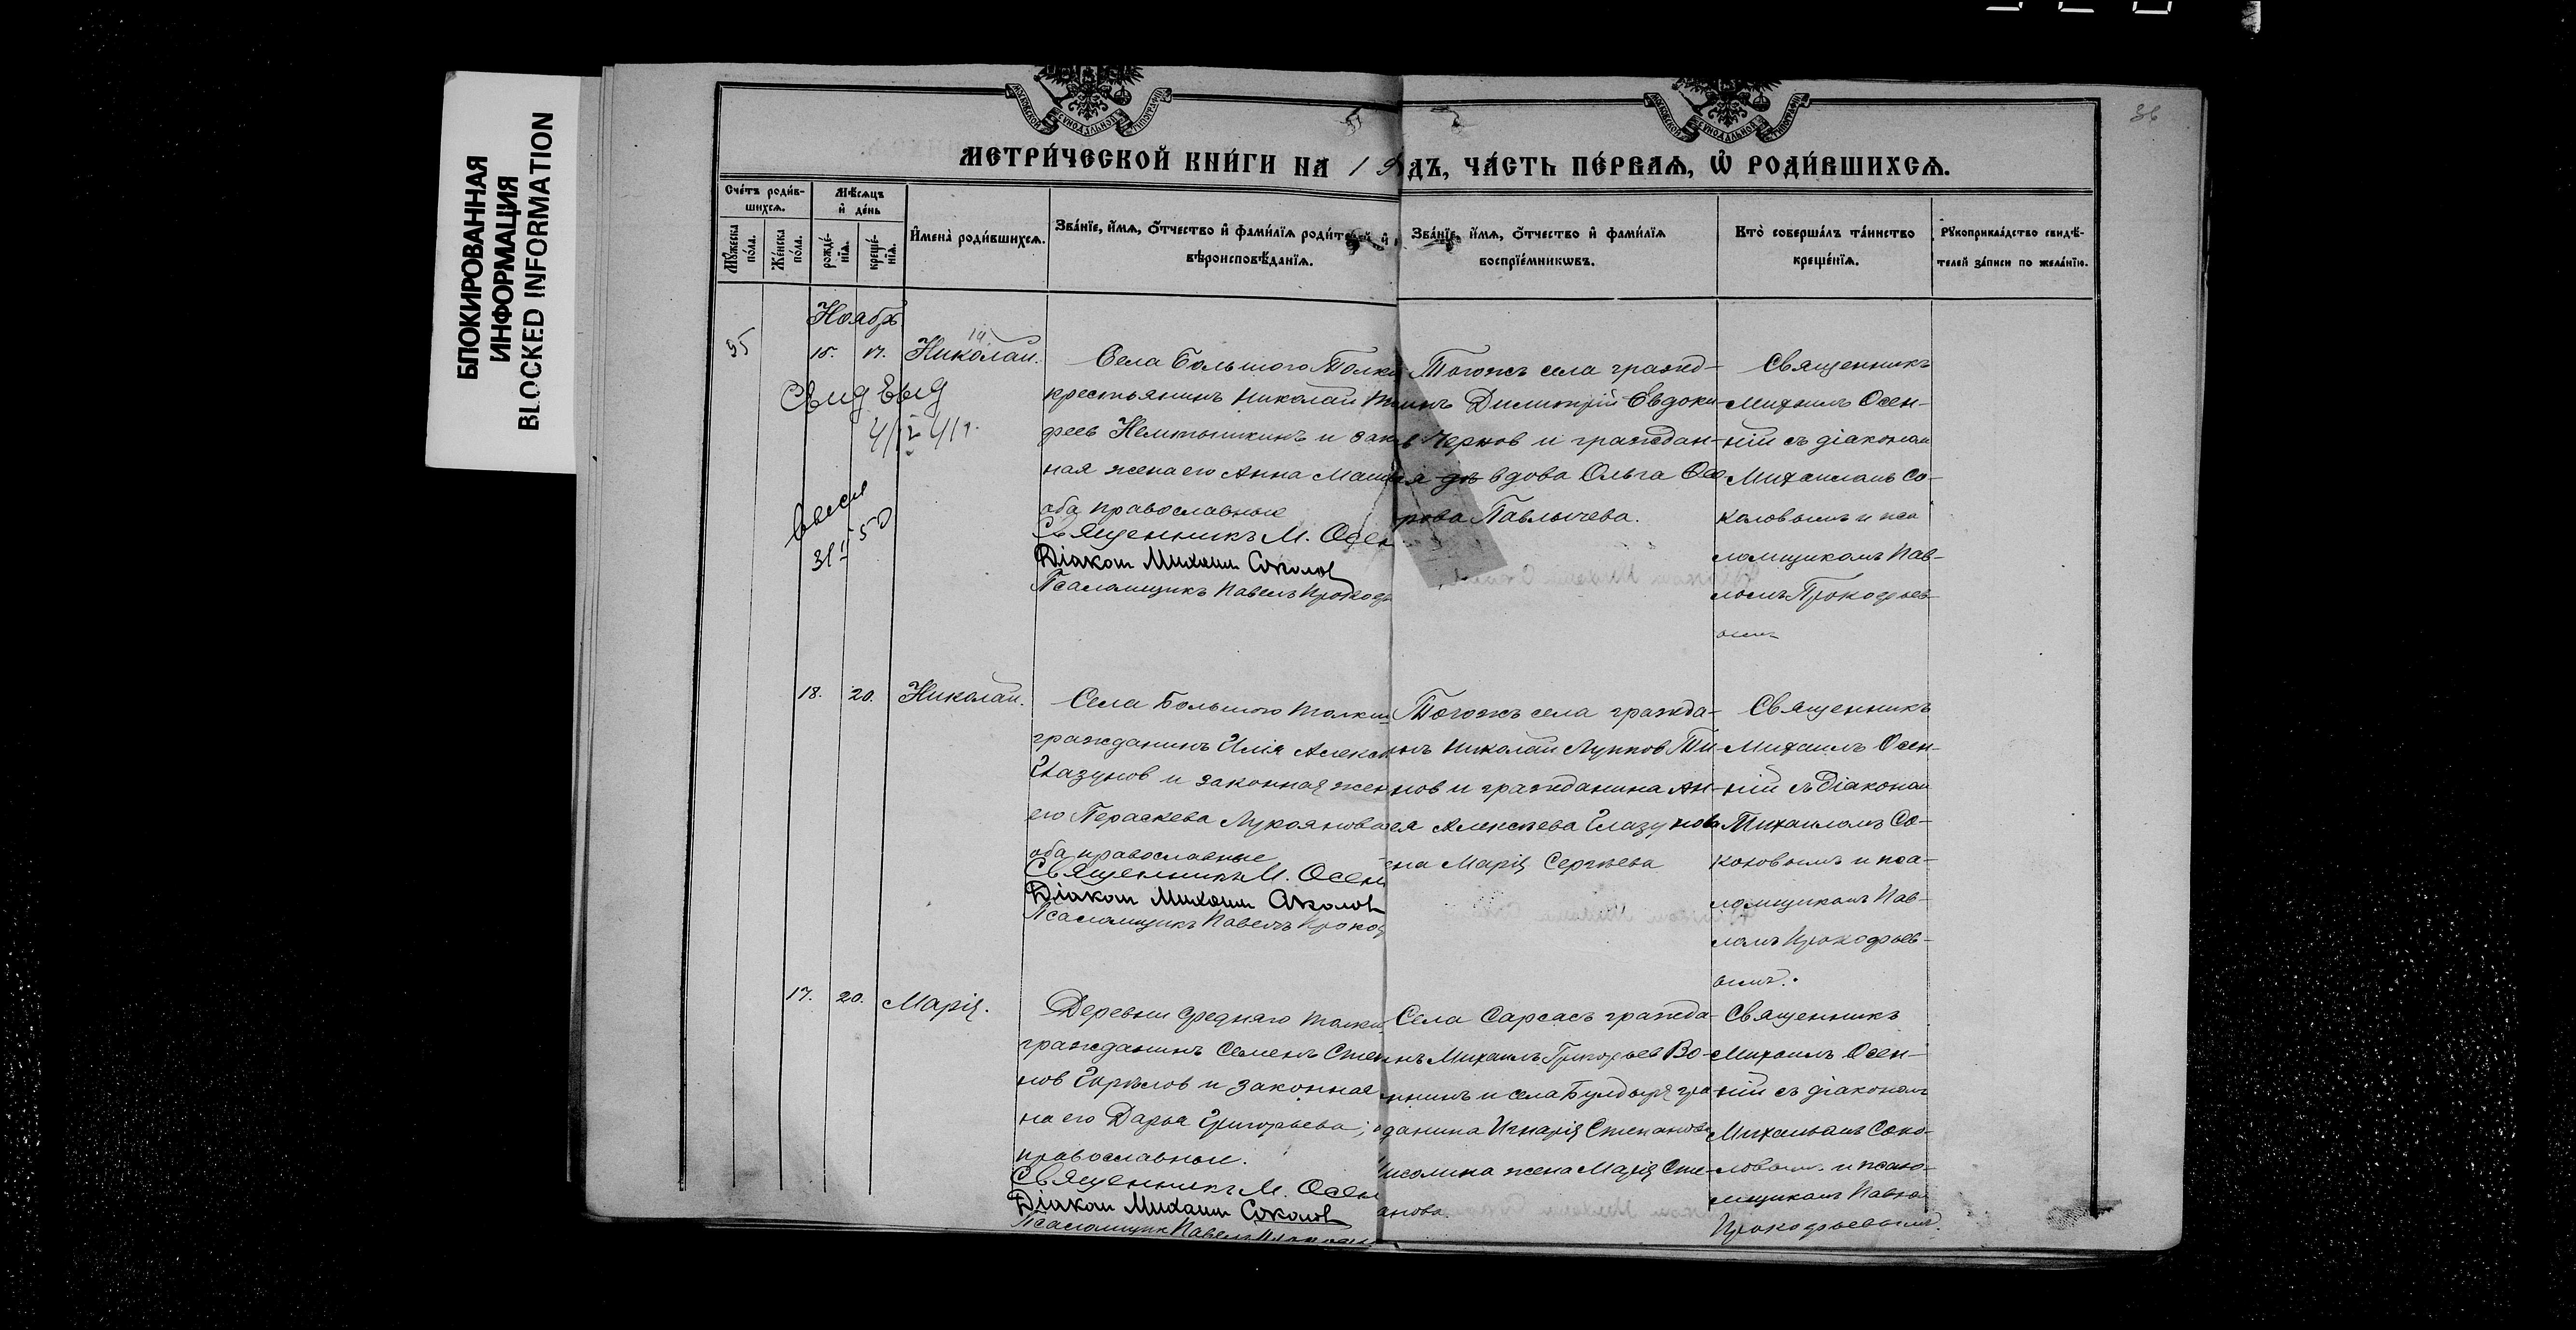 БЛОКИРОВАННАЯ
ИНФОРМАЦИЯ
BLOCKED INFORMATION
36
МОСКОВСКОЙ СѴНОДАЛЬНОЙ ТИПОГРАФІИ
МОСКОВСКОЙ СѴНОДАЛЬНОЙ ТИПОГРАФІИ
МЕТРИ́ЧЕСКОЙ КНИ́ГИ НА 19 ДЪ, ЧА́СТЬ ПЕ́РВАѦ, Ѡ РОДИ́ВШИХСѦ.
Сче́тъ роди́в-
шихсѧ.
Мꙋ́жеска
по́ла.
Же́нска
по́ла.
Мѣ́сѧцъ
и҆ де́нь
рожде́-
нїѧ.
креще́-
нїѧ.
И҆мена̀ роди́вшихсѧ.
Зва́нїе, и҆́мѧ, ѻ҆́тчество и҆ фами́лїѧ роди́телей и҆
вѣроисповѣ́данїѧ.
Зва́нїе, и҆́мѧ, ѻ҆́тчество и҆ фами́лїѧ
воспрїе́мникѡвъ.
Кто̀ соверша́лъ та́инство
креще́нїѧ.
Рꙋкоприкла́дство свидѣ́-
телей за́писи по жела́нїю.
Ноябрь
95
15. 17. Николай.
Свид выд
31 II 50
Села Большого Толки
крестьянинъ Николай
феев Немтышкинъ и зак
ная жена его Анна
оба православные
Священникъ М. Осен
Діакон Михаил Соколов
Псаломщикъ Павелъ Прокоф
Тогожъ села гражд-
инъ Димитрій Евдоки-
в Чернов и граждан-
вдова Ольга
рова Павлычева.
Священникъ
Михаилъ Осен-
ній съ діаконом
Михаиломъ Со-
коловымъ и пса
ломщикомъ Пав-
ломъ Прокофьев-
ымъ
18. 20. Николай.
Села Большого Толки
гражданинъ Илія Алекс
Глазунов и законная жен
его Параскева Лукоянова
оба православные
Священникъ М. Осен
Діакон Михаил Соколов
Псаломщикъ Павелъ Прокоф
Тогожъ села гражда-
нъ Николай Луппов Ти-
нов и гражданина Ан-
ея Алексѣева Глазунова
ена Марія Сергѣева
Священникъ
Михаилъ Осен-
ній съ Діаконом
Михаиломъ Со-
коловымъ и пса-
ломщикомъ Пав-
ломъ Прокофьев-
ымъ.
17. 20. Марія.
Деревни Средняго Толки
гражданинъ Семенъ Степ
нов Горѣлов и законная
на его Дарья Григорьева;
православные.
Священникъ М. Осен
Діакон Михаил Соколов
Псаломщик Павелъ
Села Сарсасъ гражда-
нъ Михаилъ Григорьев Во-
нинъ и села Булдыря гра-
данина Игнатія Степанова
жена Марія Сте-
анова.
Священникъ
Михаилъ Осен-
ній съ діакономъ
Михаиломъ Соко-
ловымъ и псало-
мщикомъ Павлом
Прокофьевымъ.